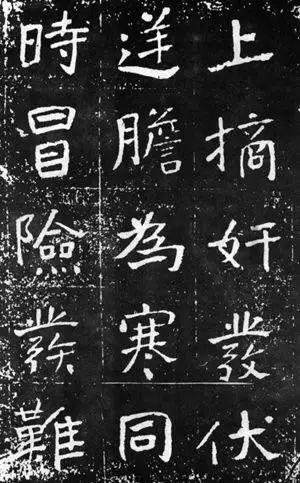 上摘奸發伏
逆膽為寒同
時冒險發難